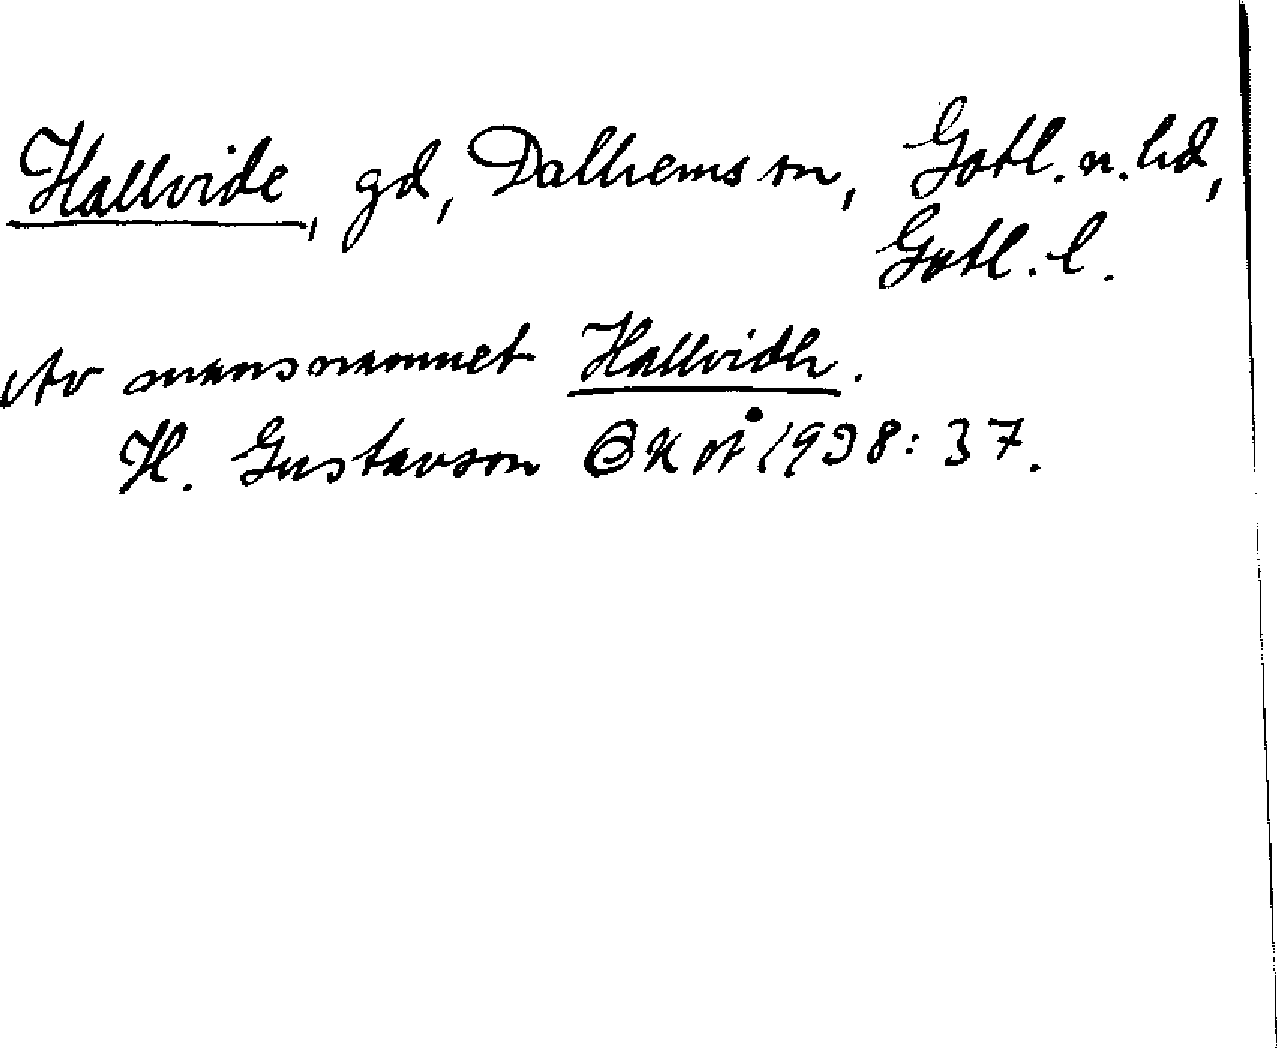 Hallvide, gd, Dalhems sn, Gotl. n. hd,
Gotl. l.
Av mansnamnet Hallvidh.
H. Gustavson GKÅ 1938: 37.